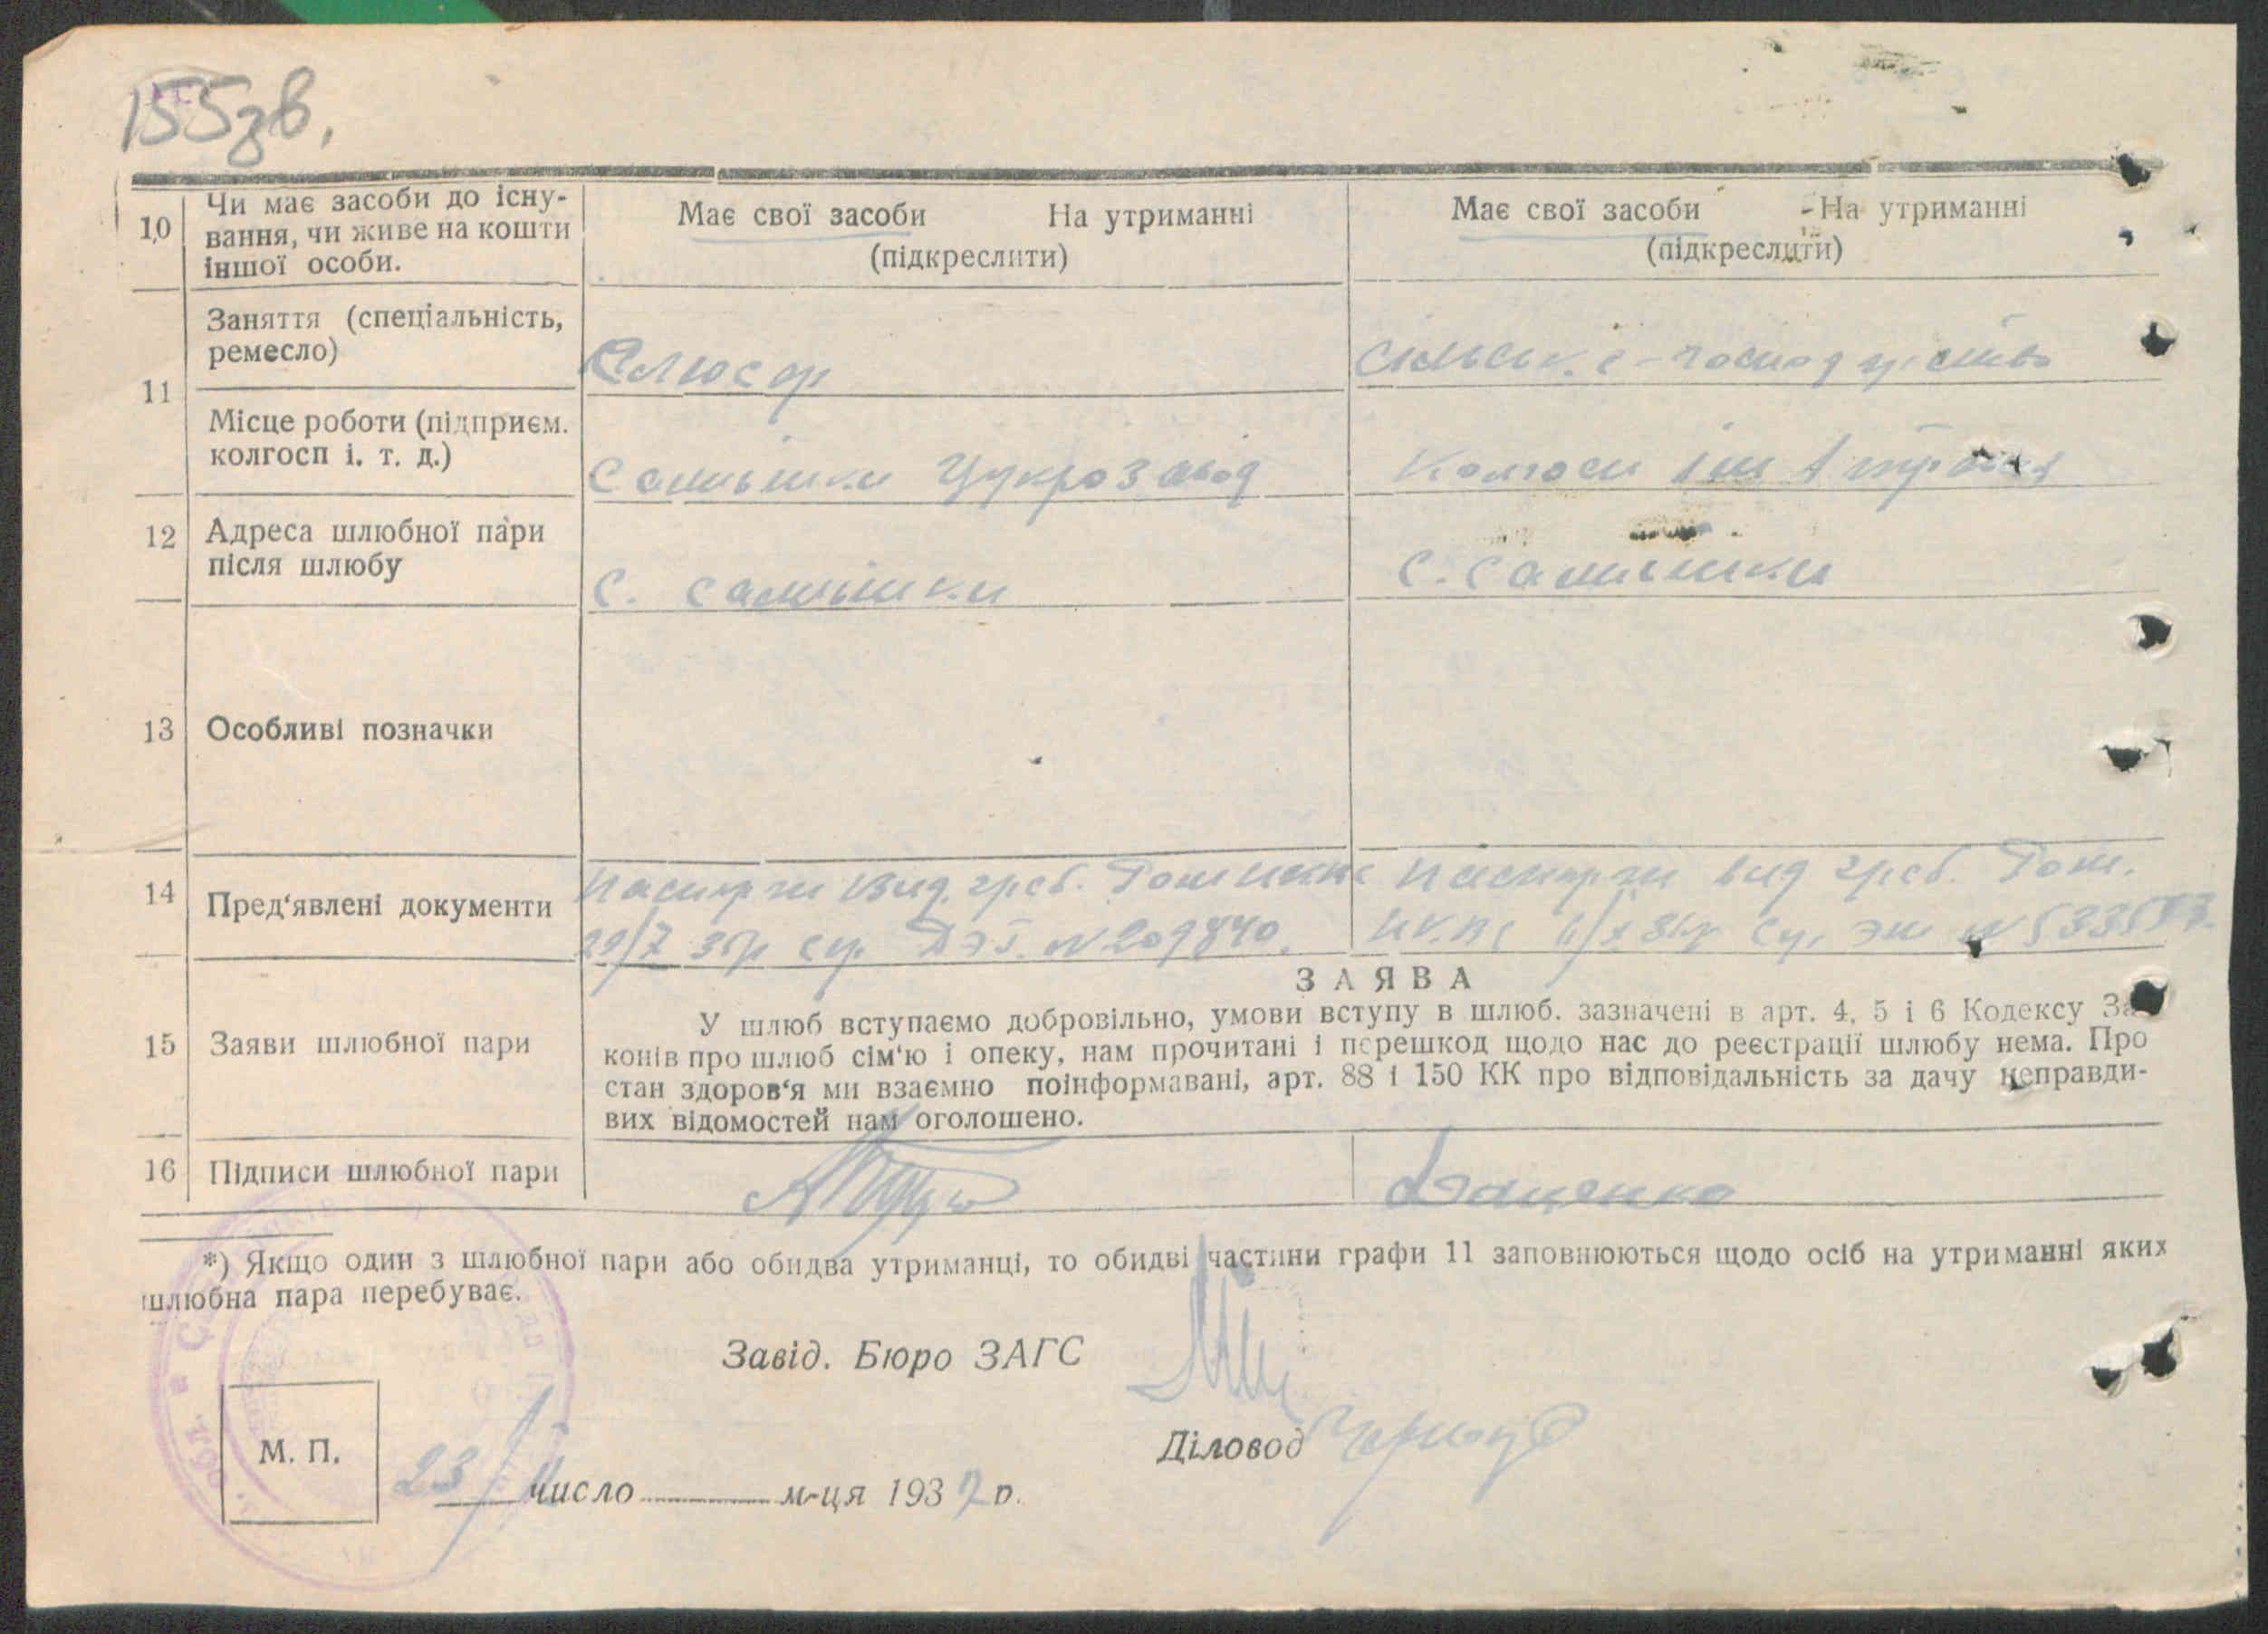 155зв.
10 Чи має засоби до існу-
вання, чи живе на кошти
іншої особи.
Має свої засоби На утриманні
(підкреслити)
Має свої засоби На утриманні
(підкреслити)
11
Заняття (спеціальність,
ремесло)
Слюсар
Сільськ. г-господарство
Місце роботи (підприєм.
колгосп і. т. д.)
Цукрозавод
Колгосп ім 1 травня
12 Адреса шлюбної пари
після шлюбу
с.
с.
13 Особливі позначки
14 Пред'явлені документи
Паспорт вид.
№ 209840.
Паспорт вид
15 Заяви шлюбної пари
ЗАЯВА
У шлюб вступаємо добровільно, умови вступу в шлюб. зазначені в арт. 4, 5 і 6 Кодексу За-
конів про шлюб сім'ю і опеку, нам прочитані і перешкод щодо нас до реєстрації шлюбу нема. Про
стан здоров'я ми взаємно поінформавані, арт. 88 і 150 КК про відповідальність за дачу неправди-
вих відомостей нам оголошено.
16 Підписи шлюбної пари
*) Якщо один з шлюбної пари або обидва утриманці, то обидві частини графи 11 заповнюються щодо осіб на утриманні яких
шлюбна пара перебуває.
Завід. Бюро ЗАГС
Діловод
М. П.
23 число м-ця 1937 р.